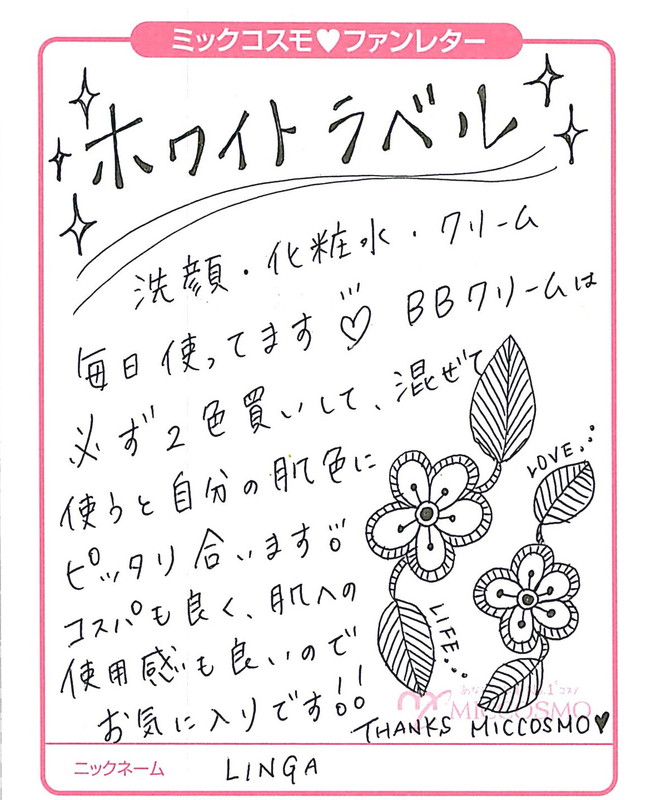 ミックコスモ♥ファンレター
ホワイトラベル
洗顔・化粧水・クリーム
毎日使ってます♡ BBクリームは
必ず2色買いして、混ぜて
使うと自分の肌色に
ピッタリ合います!!
コスパも良く、肌への
使用感も良いので
お気に入りです!!
LOVE...
LIFE...
MICCOSMO
THANKS MICCOSMO♥
ニックネーム LINGA